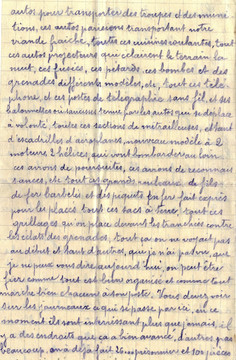 autos pour transporter des troupes et des munitions, ces autos parisiens transportant notre
viande fraîche, toutes ces cuisines roulantes, tout
ces autos projecteurs qui eclairent le terrain la
nuit, ces fusées, ces petards, ces bombes et des
grenades différents modèles, etc, tout ces télé
phone, et ces postes de telegraphie sans fil, et ses
à volonté, toute ces sections de mitrailleuses, et tant
d'escadrilles d'aeroplanes, nouveau modèle à 2
moteurs 2 hélices, qui vont bombarder au loin
ces avions de poursuites, ces avions de reconnais
sances, etc tout ces grands rouleaux de fils
de fer barbelés, et des piquets en fer fait exprès
pour les placer tout ces sacs à terre, tout ces
grillages qu'on place devant les tranchées contre
les éclats des grenades, tout ça on ne voyait pas
au début et tant d'autres, que je n'ai pas vu, que
je ne peux vous dire aujourd'hui, on peut être
fier comme tout est bien organisé et comme tout
marche bien chacun à son poste. Vous devez voir
sur les journeaux a qui se passe par ici, en ce
moment ils sont interressant plus que jamais, il
y a des endroits que ça a bien avancé, d'autres pas
beaucoup, on a déjà fait prisonniers et ses pièces